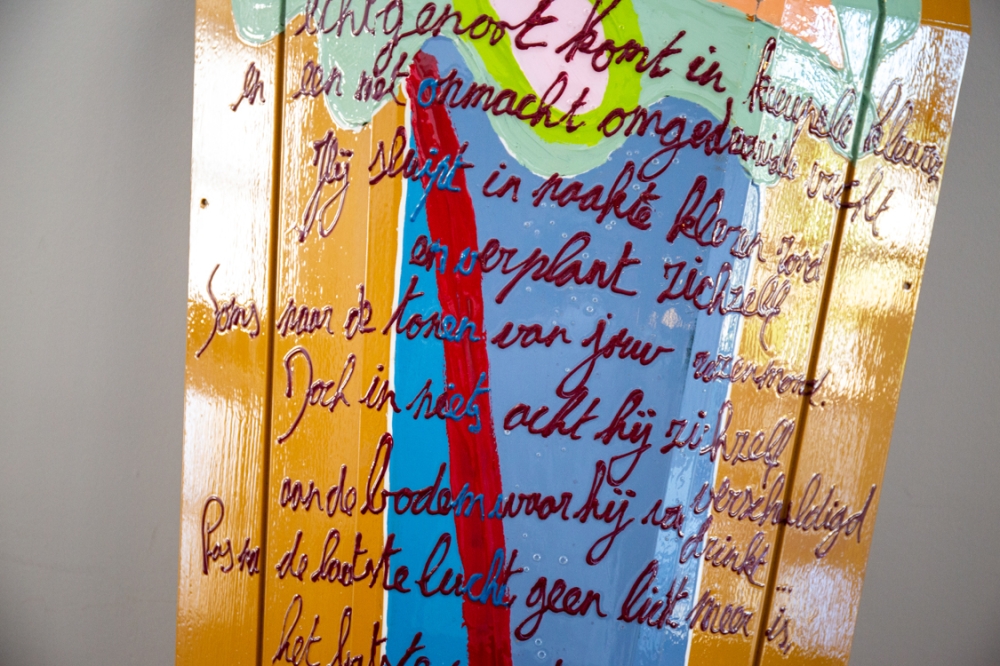 echtgenoot komt in kleuren
en een net onmacht omgedraaide vucht
Hij sluipt in naakte kleren rond
en verplant zichzelf
Soms naar de tonen van jouw rozenmond.
Doch in niets acht hij zichzelf
verschuldigd
aan de bodem waar hij van drinkt...
Pas na de laatste lucht, geen licht meer is,
het laatste